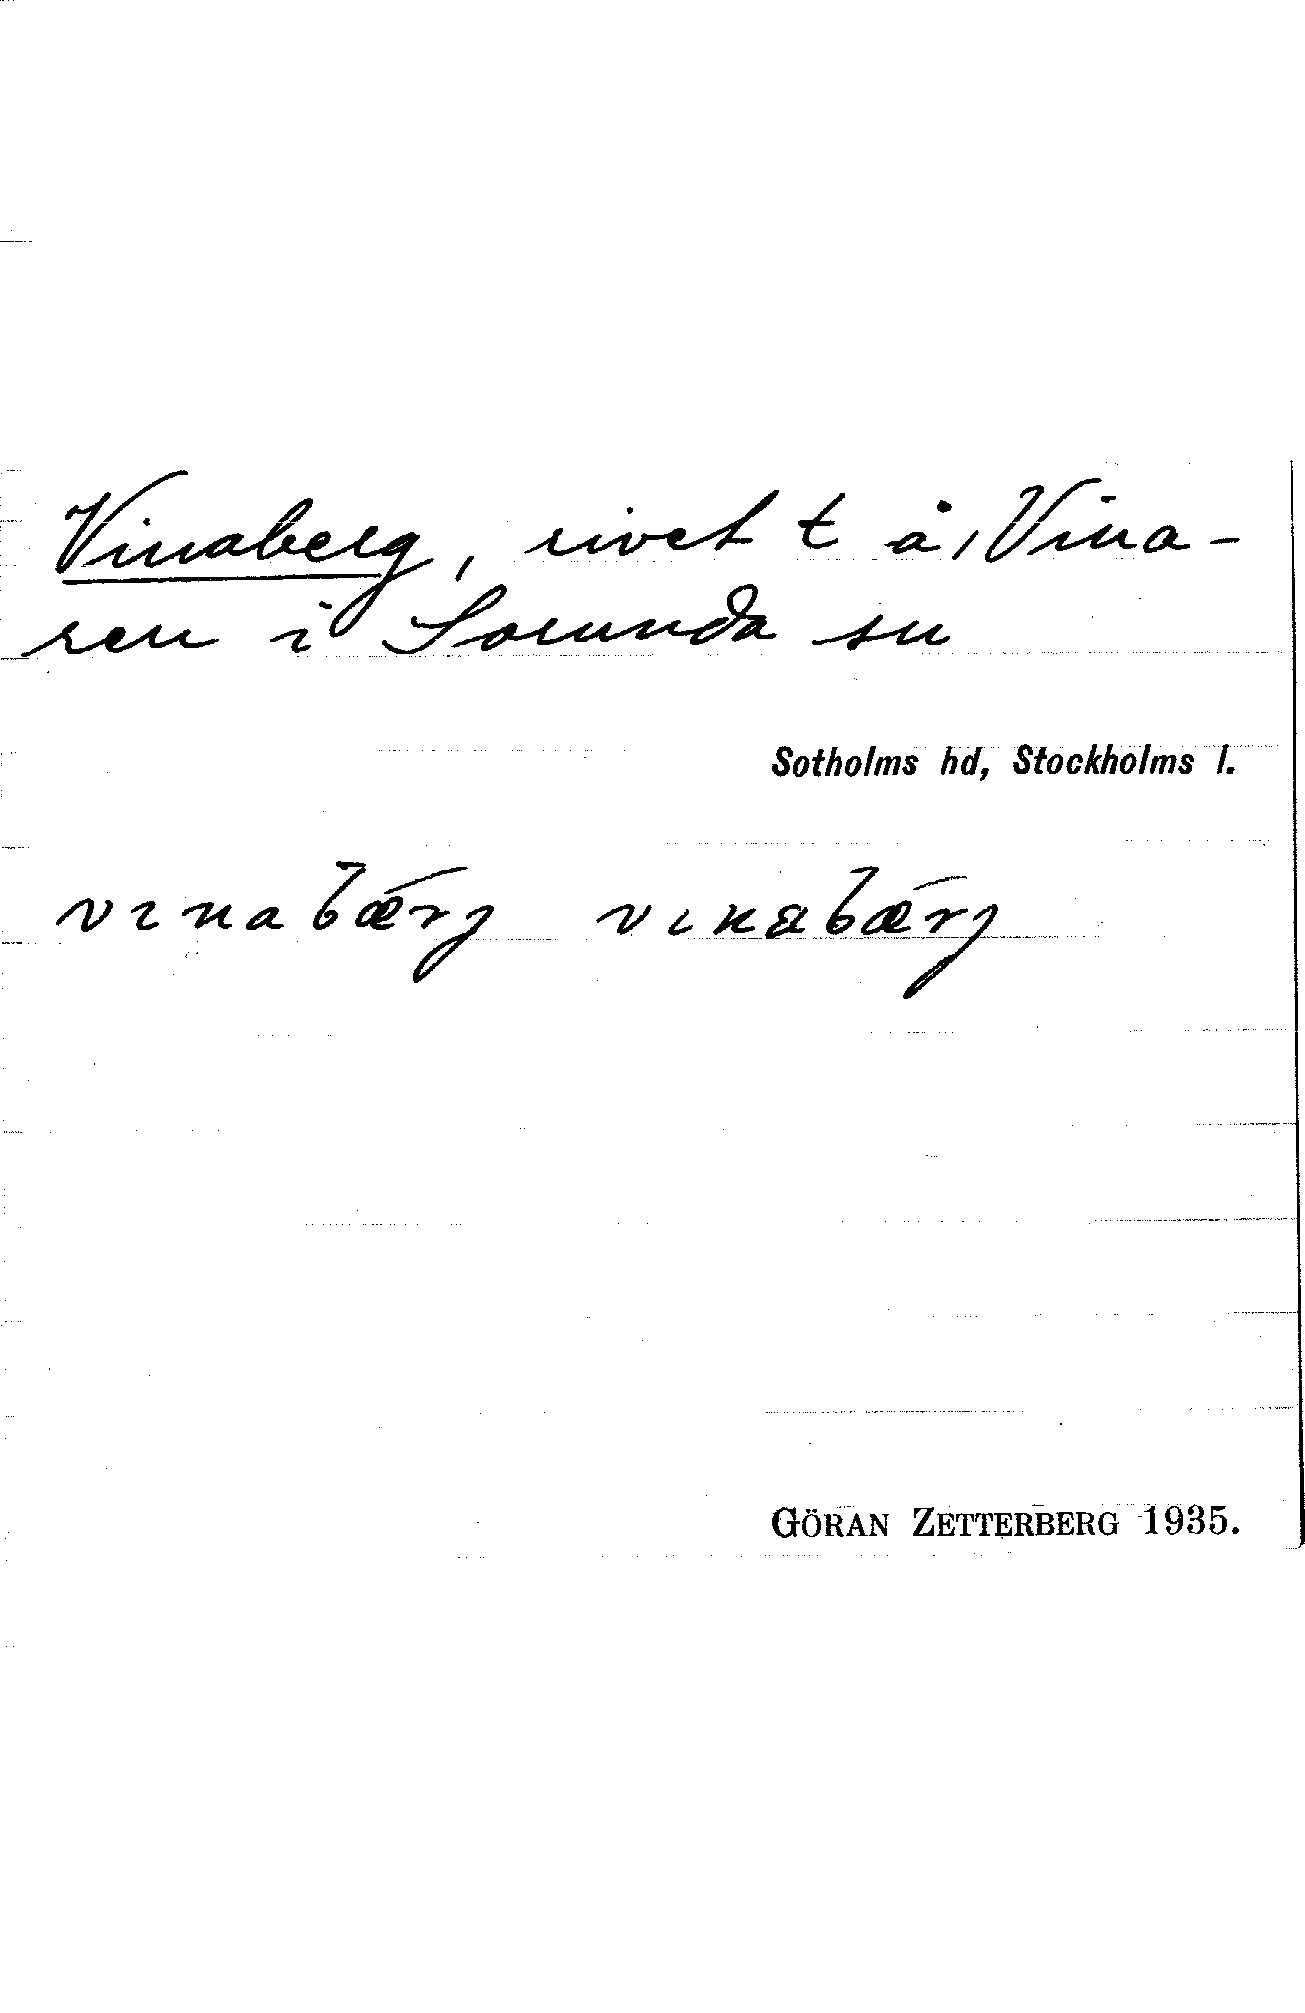 Vinaberg, rivet t å, Vina-
ren i Sorunda sn
Sotholms hd, Stockholms l.
vinabærj vinabærj
GÖRAN ZETTERBERG 1935.